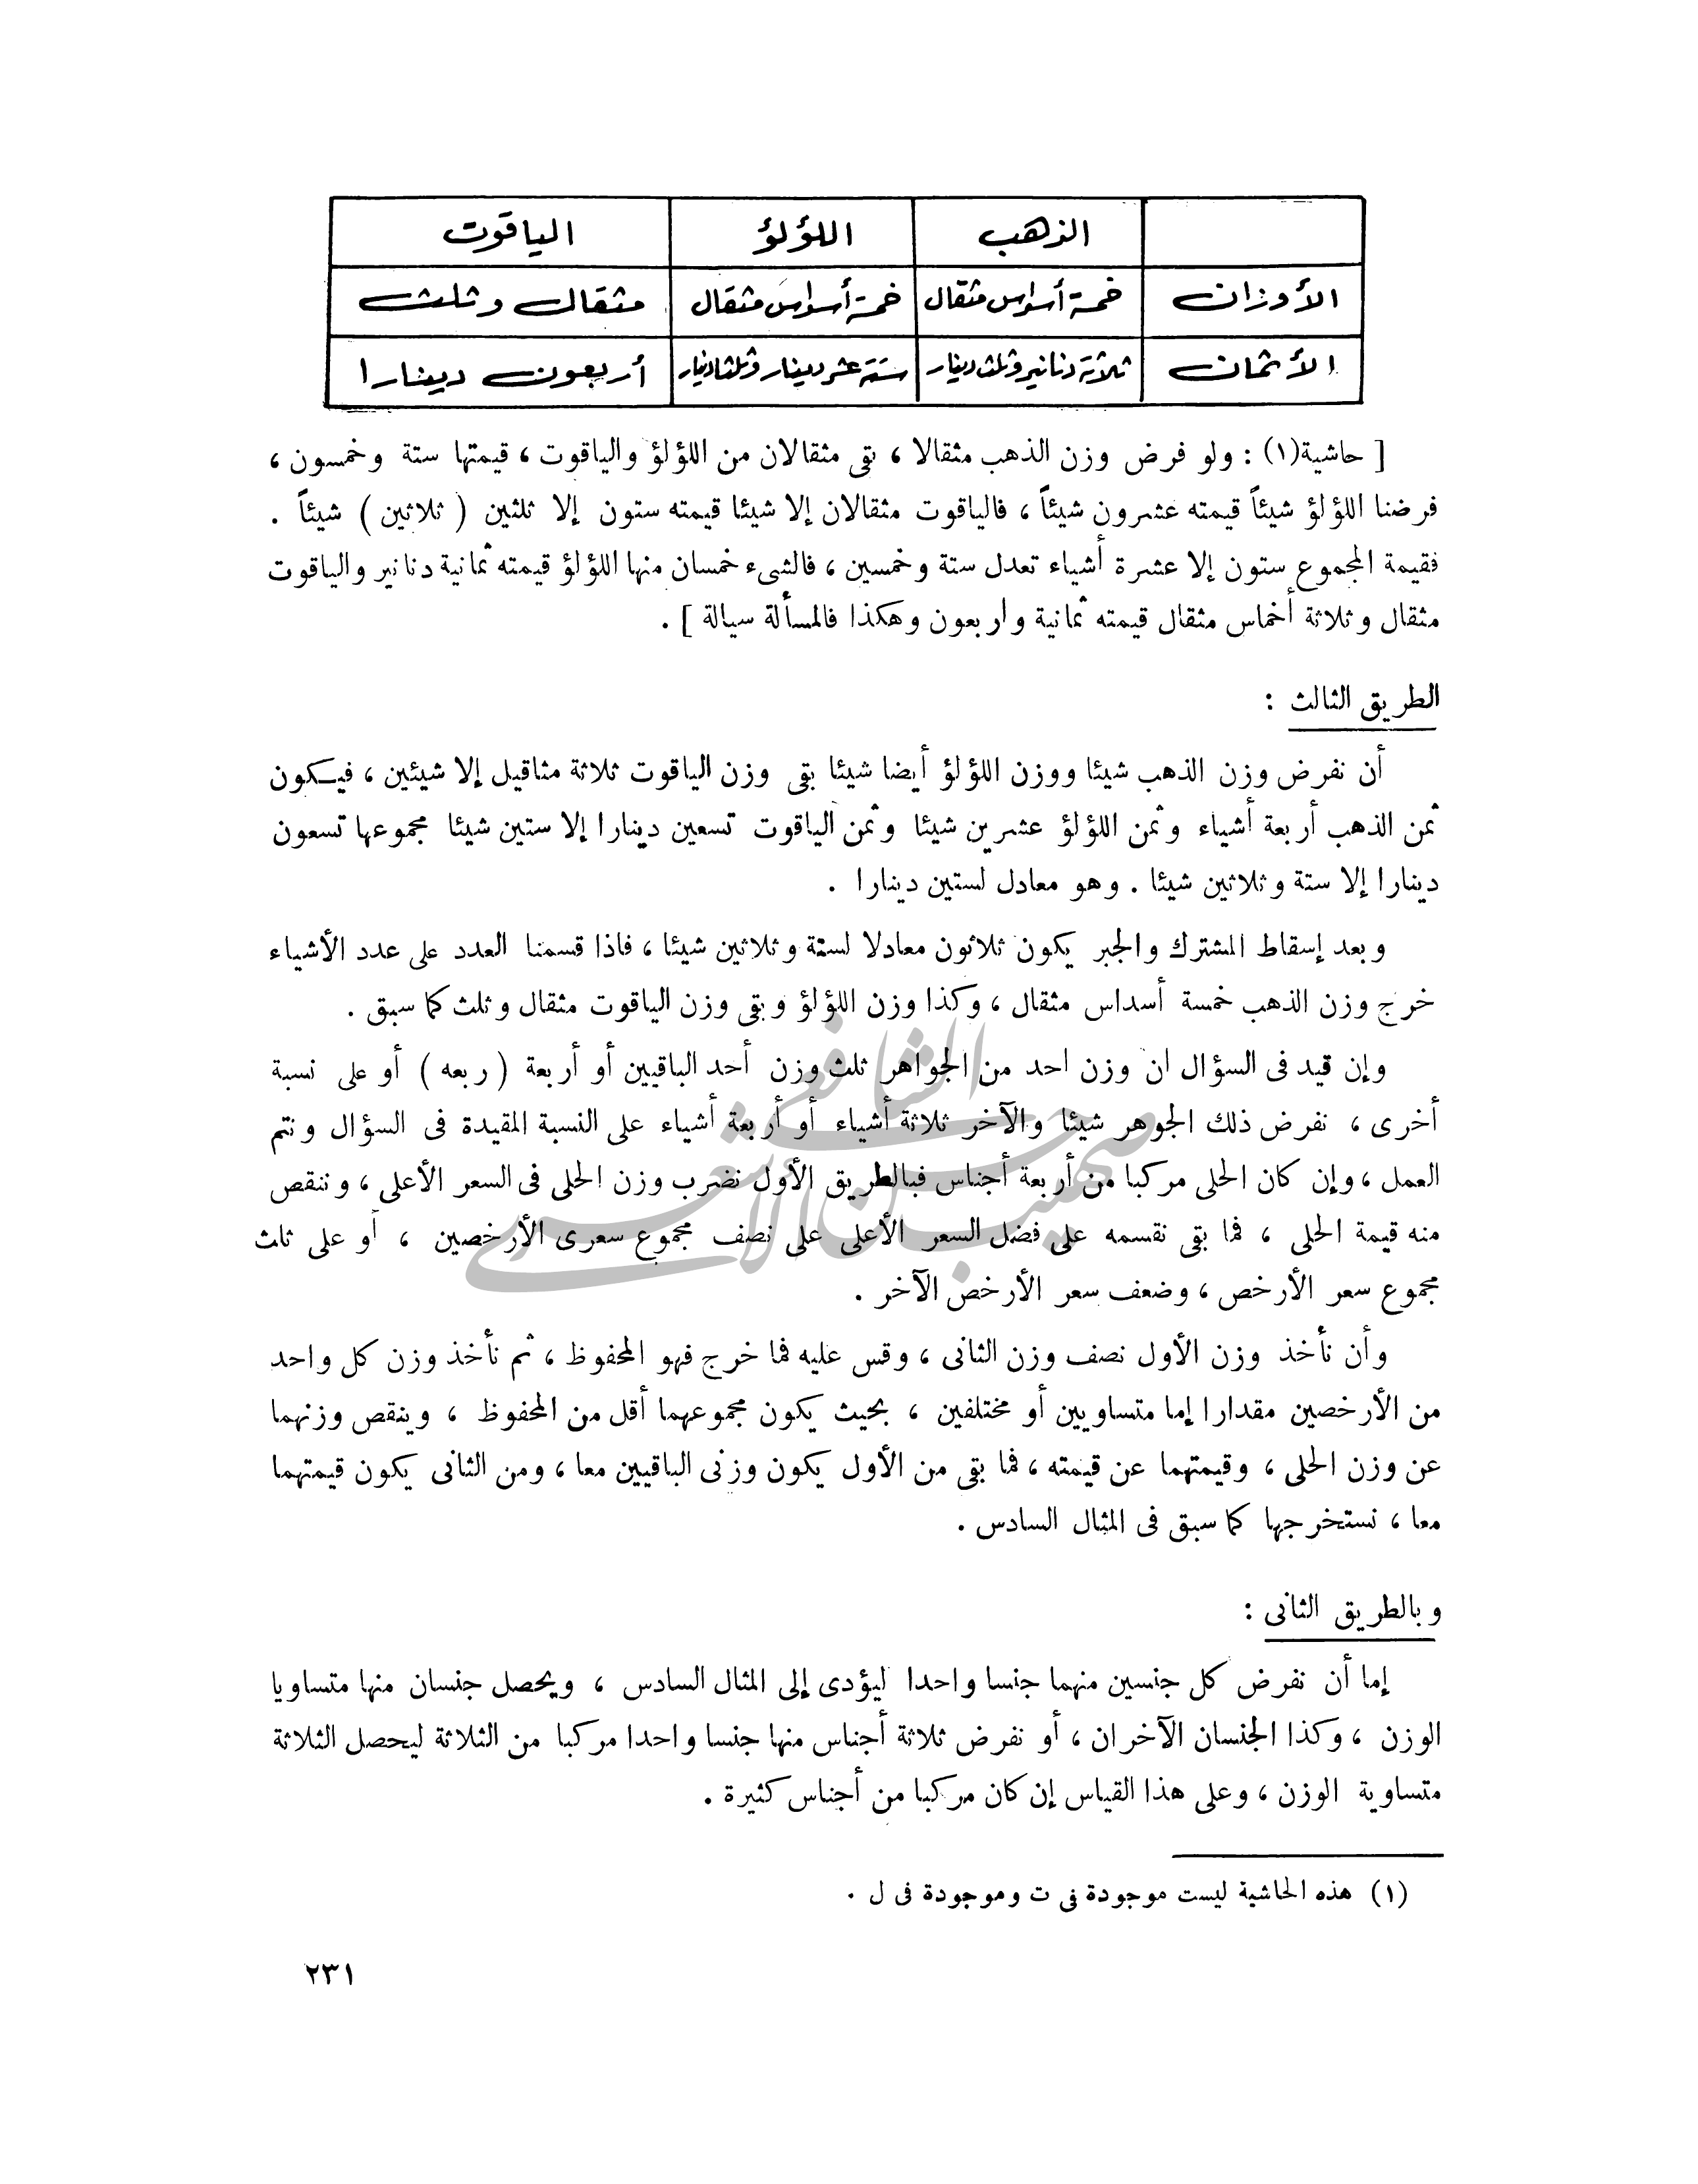 الذهب اللؤلؤ الياقوت
الأوزان خمسة أسداس مثقال خمسة أسداس مثقال مثقال وثلث
الأثمان ثلاثة دنانير وثلث دينار ستة عشر دينار وثلثا دينار أربعون دينارا
[ حاشية(١) : ولو فرض وزن الذهب مثقالا ، بقى مثقالان من اللؤلؤ والياقوت ، قيمتها ستة وخمسون ،
فرضنا اللؤلؤ شيئاً قيمته عشرون شيئاً ، فالياقوت مثقالان إلا شيئا قيمته ستون إلا ثلثين ( ثلاثين ) شيئاً .
فقيمة المجموع ستون إلا عشرة أشياء تعدل ستة وخمسين ، فالشىء خمسان منها اللؤلؤ قيمته ثمانية دنانير والياقوت
مثقال وثلاثة أخماس مثقال قيمته ثمانية وأربعون وهكذا فالمسألة سيالة ] .
الطريق الثالث :
أن نفرض وزن الذهب شيئا ووزن اللؤلؤ أيضا شيئا بقى وزن الياقوت ثلاثة مثاقيل إلا شيئين ، فيكون
ثمن الذهب أربعة أشياء وثمن اللؤلؤ عشرين شيئا وثمن الياقوت تسعين دينارا إلا ستين شيئا مجموعها تسعون
دينارا إلا ستة وثلاثين شيئا . وهو معادل لستين دينارا .
وبعد إسقاط المشترك والجبر يكون ثلاثون معادلا لستة وثلاثين شيئا ، فاذا قسمنا العدد على عدد الأشياء
خرج وزن الذهب خمسة أسداس مثقال ، وكذا وزن اللؤلؤ وبقى وزن الياقوت مثقال وثلث كما سبق .
وإن قيد فى السؤال ان وزن احد من الجواهر ثلث وزن أحد الباقيين أو أربعة ( ربعه ) أو على نسبة
أخرى ، نفرض ذلك الجوهر شيئا والآخر ثلاثة أشياء أو أربعة أشياء على النسبة المقيدة فى السؤال ونتم
العمل ، وإن كان الحلى مركبا من أربعة أجناس فبالطريق الأول نضرب وزن الحلى فى السعر الأعلى ، وننقص
منه قيمة الحلى ، فما بقى نقسمه على فضل السعر الأعلى على نصف مجموع سعرى الأرخصين ، أو على ثلث
مجموع سعر الأرخص ، وضعف سعر الأرخص الآخر .
وأن نأخذ وزن الأول نصف وزن الثانى ، وقس عليه فما خرج فهو المحفوظ ، ثم نأخذ وزن كل واحد
من الأرخصين مقدارا إما متساويين أو مختلفين ، بحيث يكون مجموعهما أقل من المحفوظ ، وينقص وزنهما
عن وزن الحلى ، وقيمتهما عن قيمته ، فما بقى من الأول يكون وزنى الباقيين معا ، ومن الثانى يكون قيمتهما
معا ، نستخرجها كما سبق فى المثال السادس .
وبالطريق الثانى :
إما أن نفرض كل جنسين منهما جنسا واحدا ليؤدى إلى المثال السادس ، ويحصل جنسان منها متساويا
الوزن ، وكذا الجنسان الآخران ، أو نفرض ثلاثة أجناس منها جنسا واحدا مركبا من الثلاثة ليحصل الثلاثة
متساوية الوزن ، وعلى هذا القياس إن كان مركبا من أجناس كثيرة .
(١) هذه الحاشية ليست موجودة فى ت وموجودة فى ل .
٢٣١